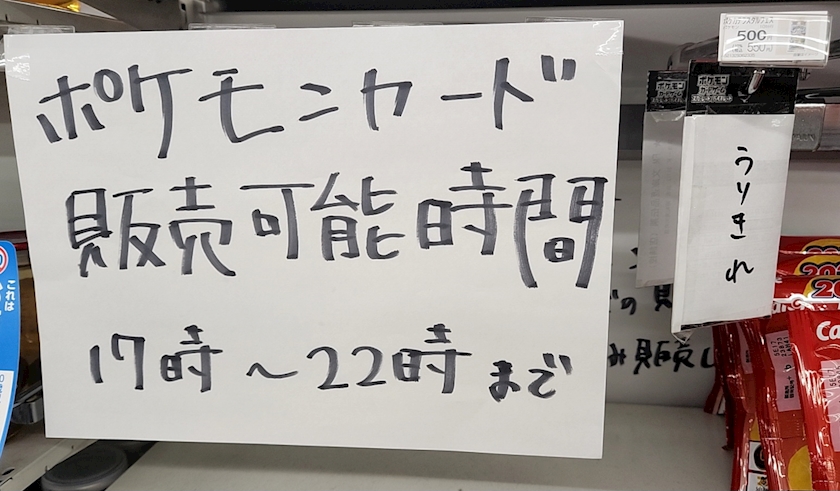 ポケモンカード
販売可能時間
17時～22時まで
500
550
ポケモン
カードゲーム
うりきれ
これは
Ca